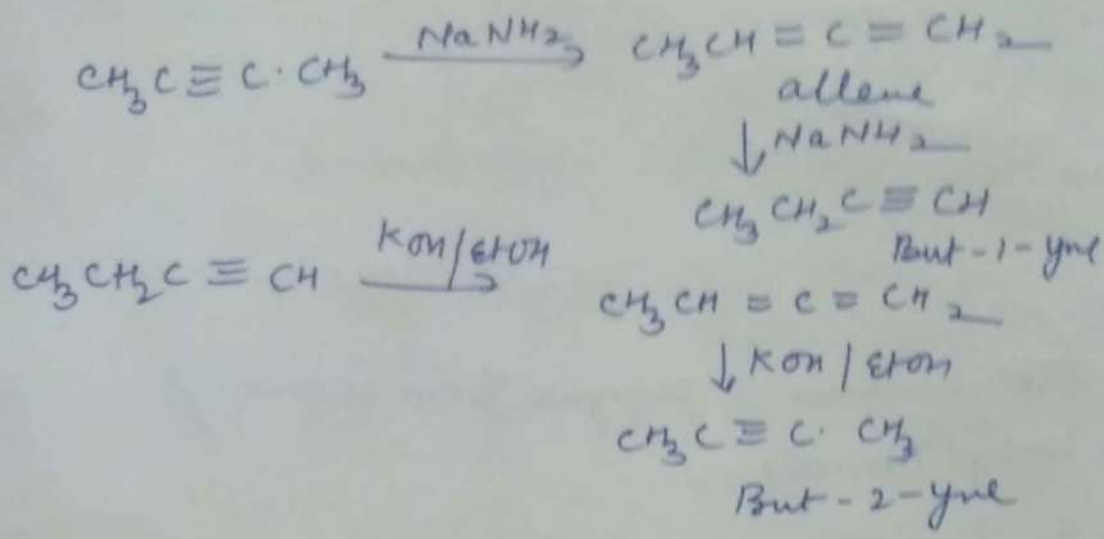 CH₃C≡C·CH₃ NaNH₂→ CH₃CH=C=CH₂
allene
↓NaNH₂
CH₃CH₂C≡CH
But-1-yne
CH₃CH₂C≡CH KOH/EtOH→
CH₃CH=C=CH₂
↓KOH/EtOH
CH₃C≡C·CH₃
But-2-yne